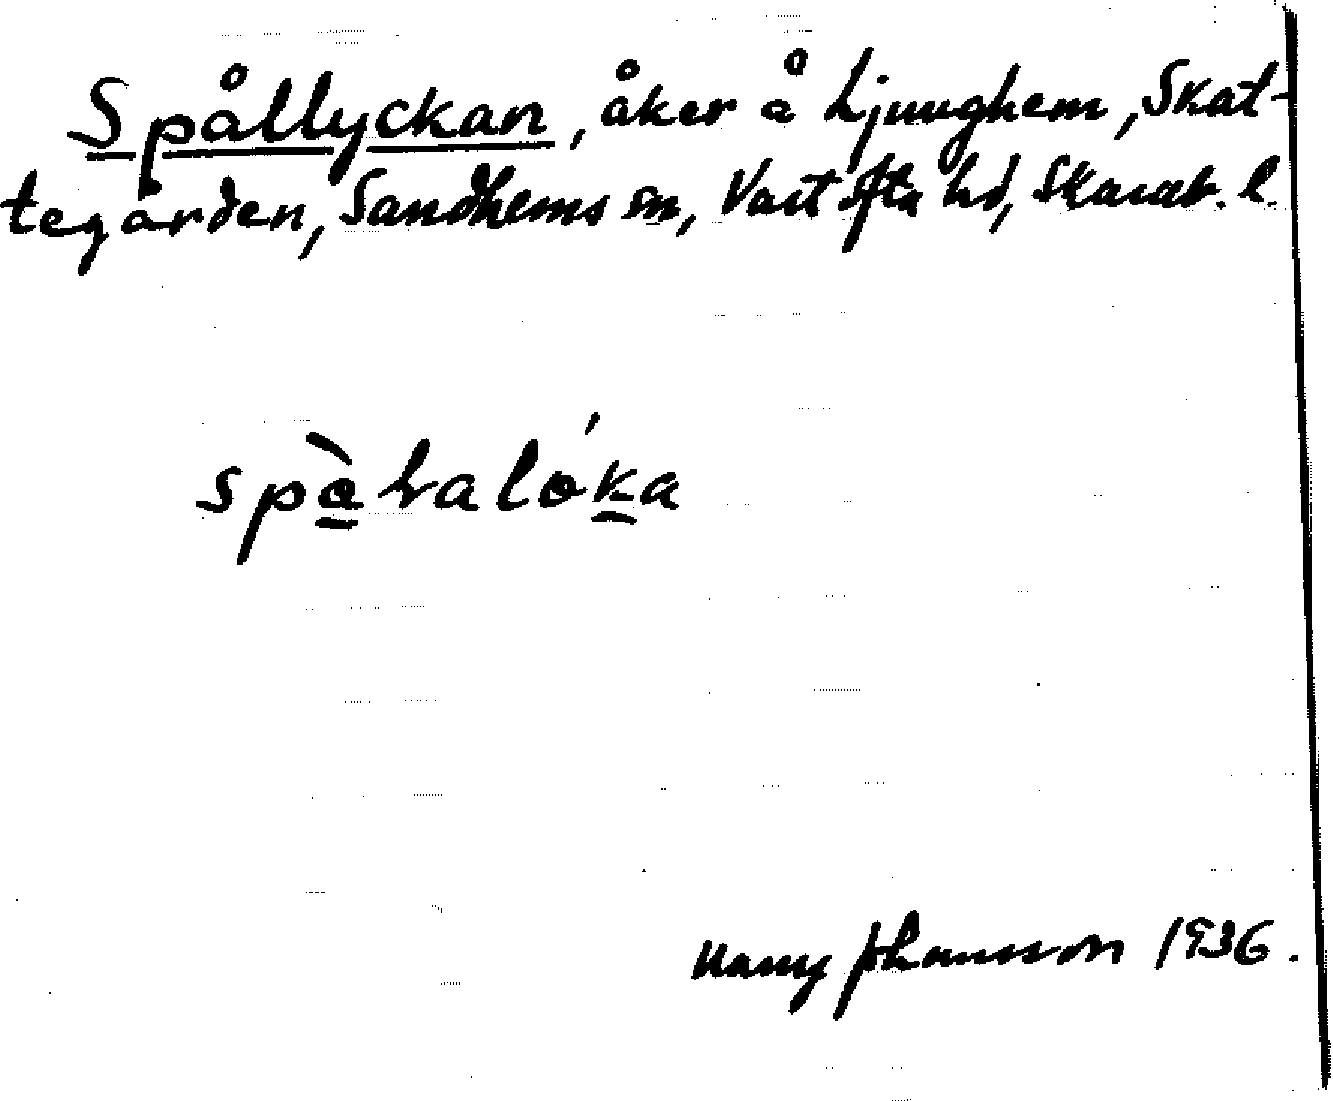 Spållyckan, åker å Ljunghem, Skat-
tegården, Sandhems sn, Vartofta hd, Skarab. l.
spåralóka
Harry Johansson 1936.